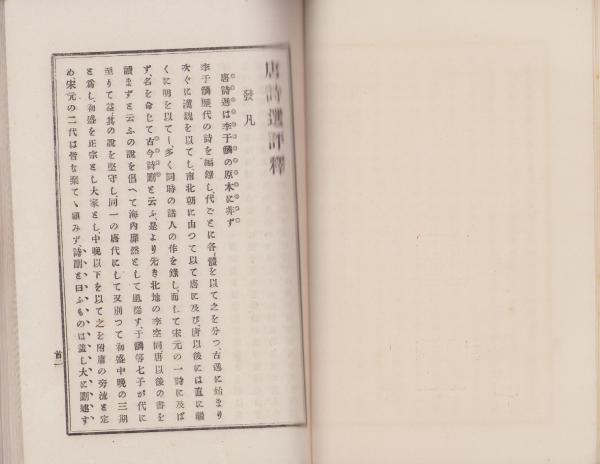 唐詩選評釋
發凡
唐詩選は李于鱗の原本に非ず
李于鱗歷代の詩を編錄し、代ごとに各〻體を以て之を分つ、古逸に始まり
次ぐに漢魏を以てし、南北朝に由つて以て唐に及び、唐以後には直に繼
ぐに明を以てし、多く同時の諸人の作を錄し、而して宋元の一詩に及ば
ず、名を命じて古今詩刪と云ふ、是より先き北地の李空同唐以後の書を
讀まずと云ふの說を倡へて海內靡然として風從す、于鱗等七子が代に
至りて益〻其の說を堅守し、同一の唐代にして又別つて初盛中晚の三期
と爲し、初盛を正宗とし大家とし、中晚以下を以て之を附庸の旁流と定
め、宋元の二代は皆な棄てゝ顧みず、詩刪と曰ふものは蓋し大に刪述す
首一